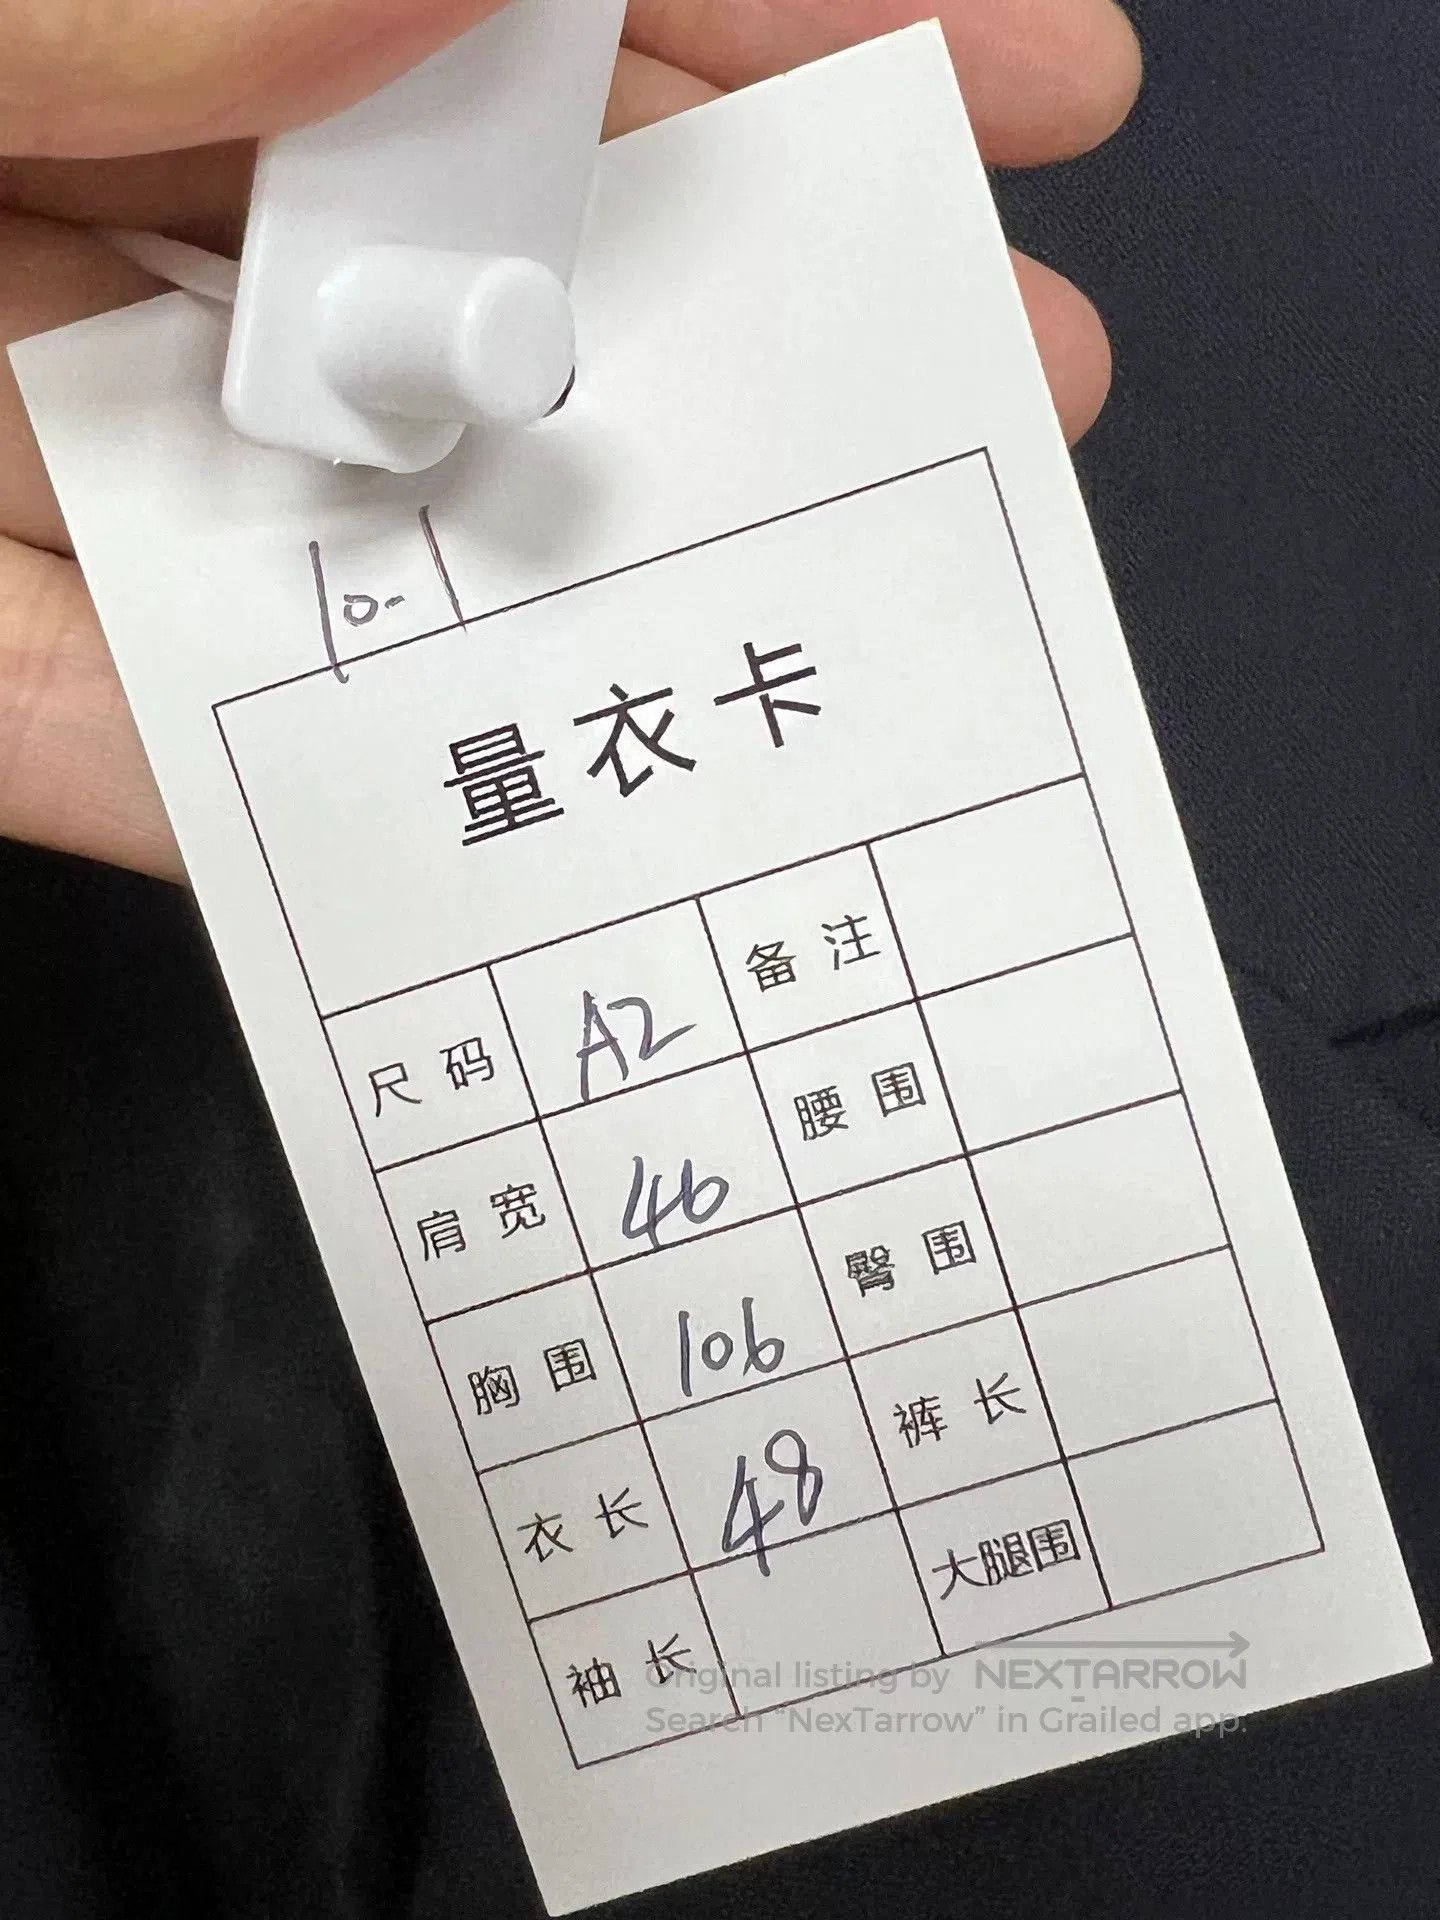 10-1
量衣卡
尺码 A2 备注
肩宽 46 腰围
胸围 106 臀围
衣长 48 裤长
袖长 大腿围
Original listing by NEXTARROW
Search “NexTarrow” in Grailed app.